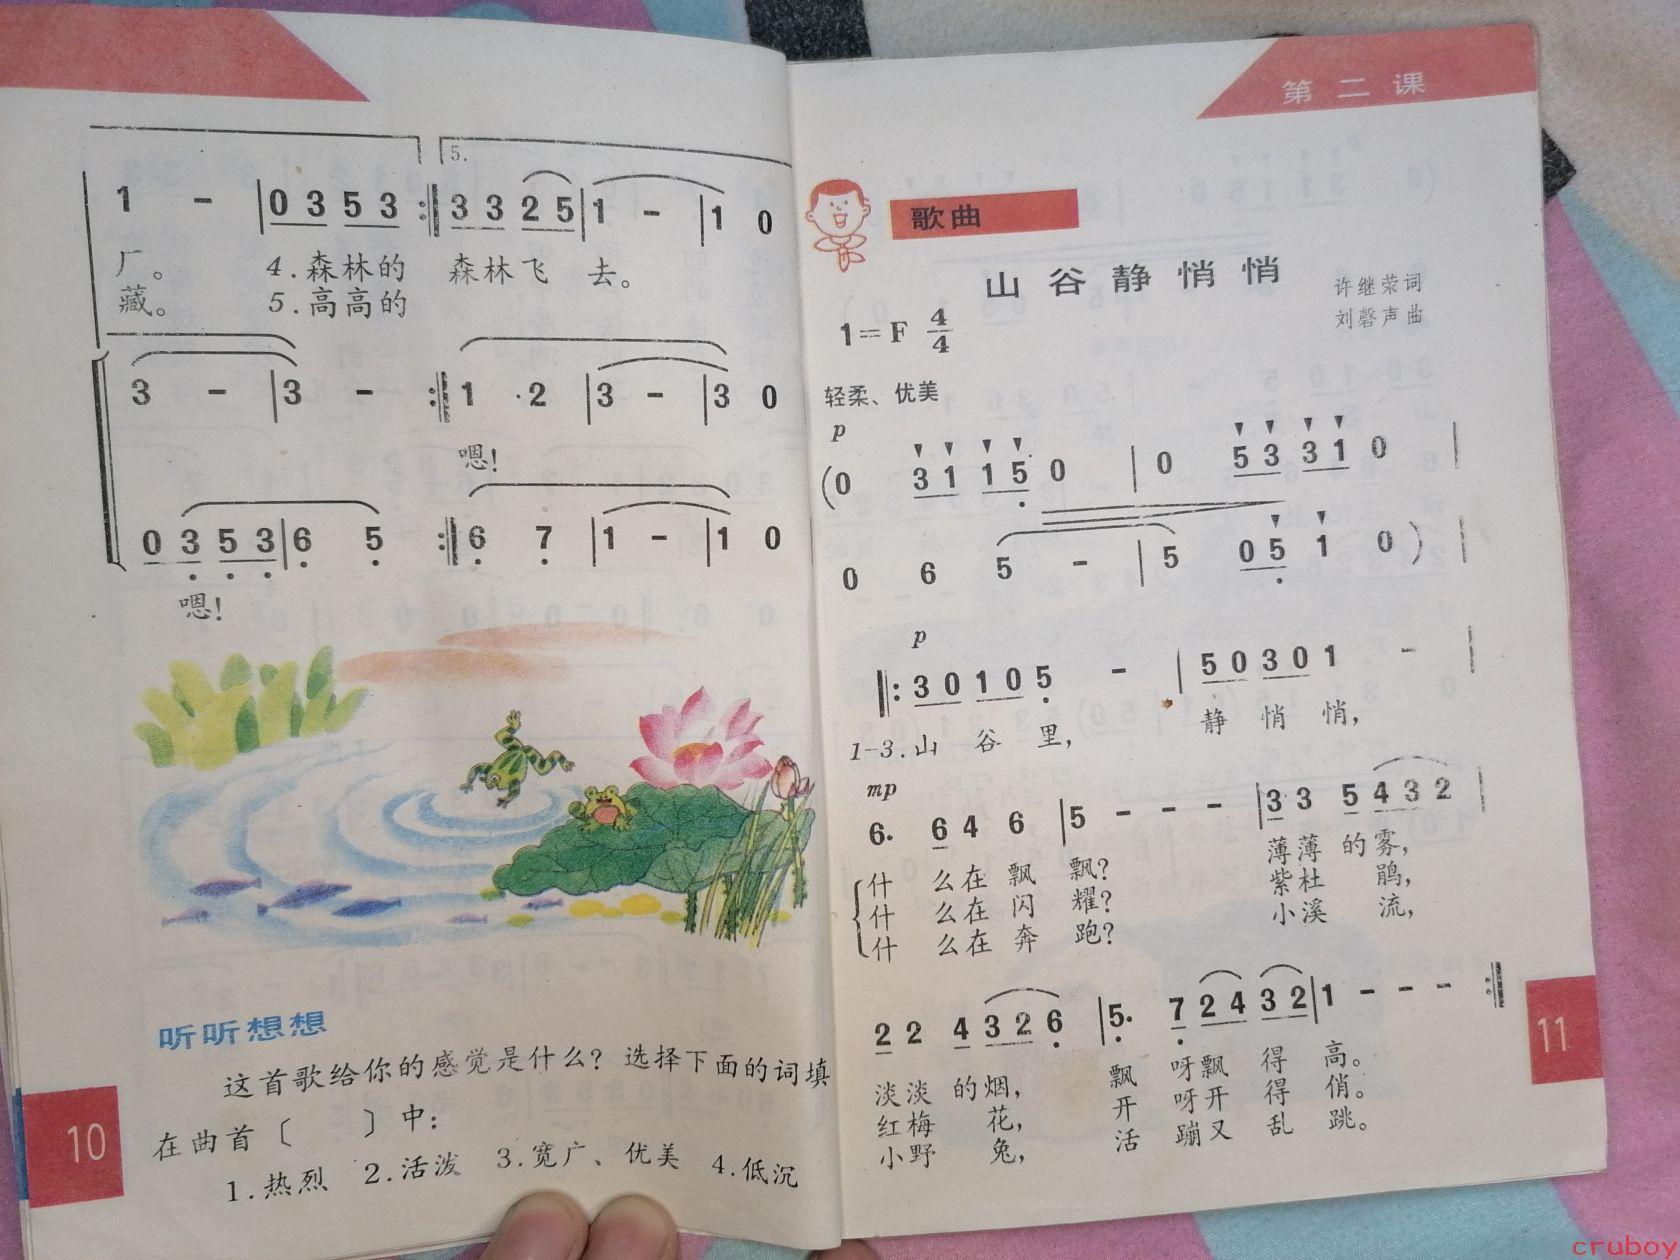 5.
1 - | 0 3 5 3 :‖ 3 3 2 5 | 1 - | 1 0
厂。 4.森林的 森林飞 去。
藏。 5.高高的
3 - | 3 - :‖ 1 · 2 | 3 - | 3 0
嗯!
0 3 5 3 | 6 5 :‖ 6 7 | 1 - | 1 0
嗯!
听听想想
这首歌给你的感觉是什么? 选择下面的词填
在曲首〔 〕中:
1.热烈 2.活泼 3.宽广、优美 4.低沉
10
第二课
歌曲
山谷静悄悄
许继荣词
刘磬声曲
1=F 4/4
轻柔、优美
p
(0 3 1 1 5 0 | 0 5 3 3 1 0 |
0 6 5 - | 5 0 5 1 0) |
p
‖: 3 0 1 0 5 - | 5 0 3 0 1 - |
1-3.山 谷 里, 静 悄 悄,
mp
6. 6 4 6 | 5 - - - | 3 3 5 4 3 2 |
什 么在 飘 飘? 薄薄 的雾,
什 么在 闪 耀? 紫杜 鹃,
什 么在 奔 跑? 小溪 流,
2 2 4 3 2 6 | 5. 7 2 4 3 2 | 1 - - - :‖
淡淡 的烟, 飘 呀飘 得 高。
红梅 花, 开 呀开 得 俏。
小野 兔, 活 蹦又 乱 跳。
11
cruboy